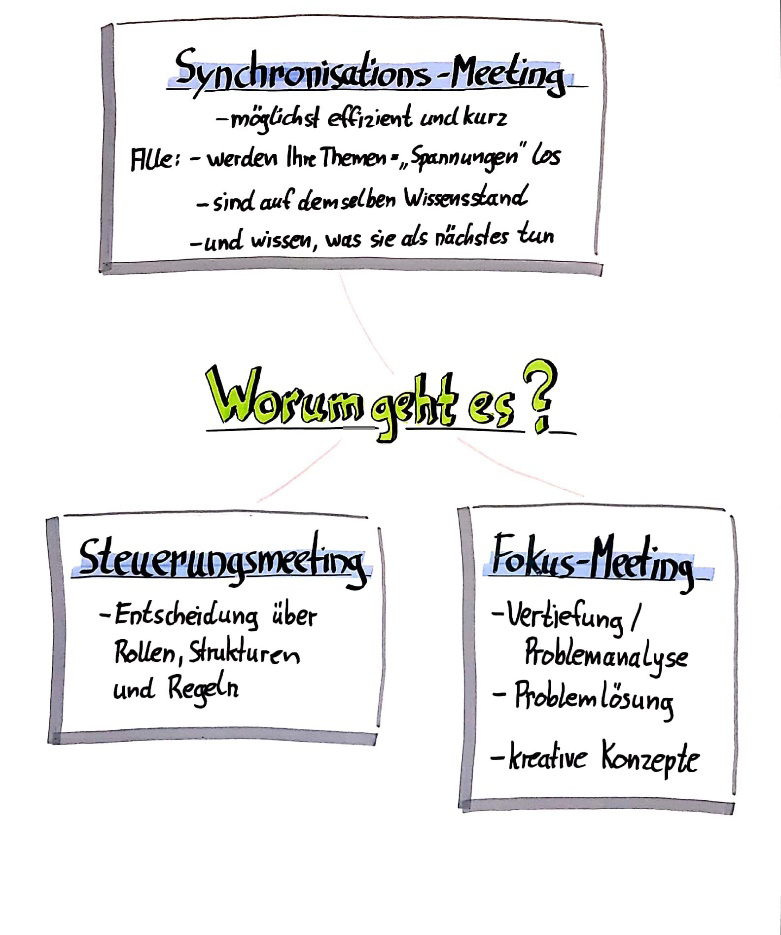 Synchronisations-Meeting
- möglichst effizient und kurz
Alle: - werden Ihre Themen = „Spannungen" los
- sind auf demselben Wissensstand
- und wissen, was sie als nächstes tun
Worum geht es?
Steuerungsmeeting
- Entscheidung über
Rollen, Strukturen
und Regeln
Fokus-Meeting
- Vertiefung /
Problemanalyse
- Problemlösung
- kreative Konzepte